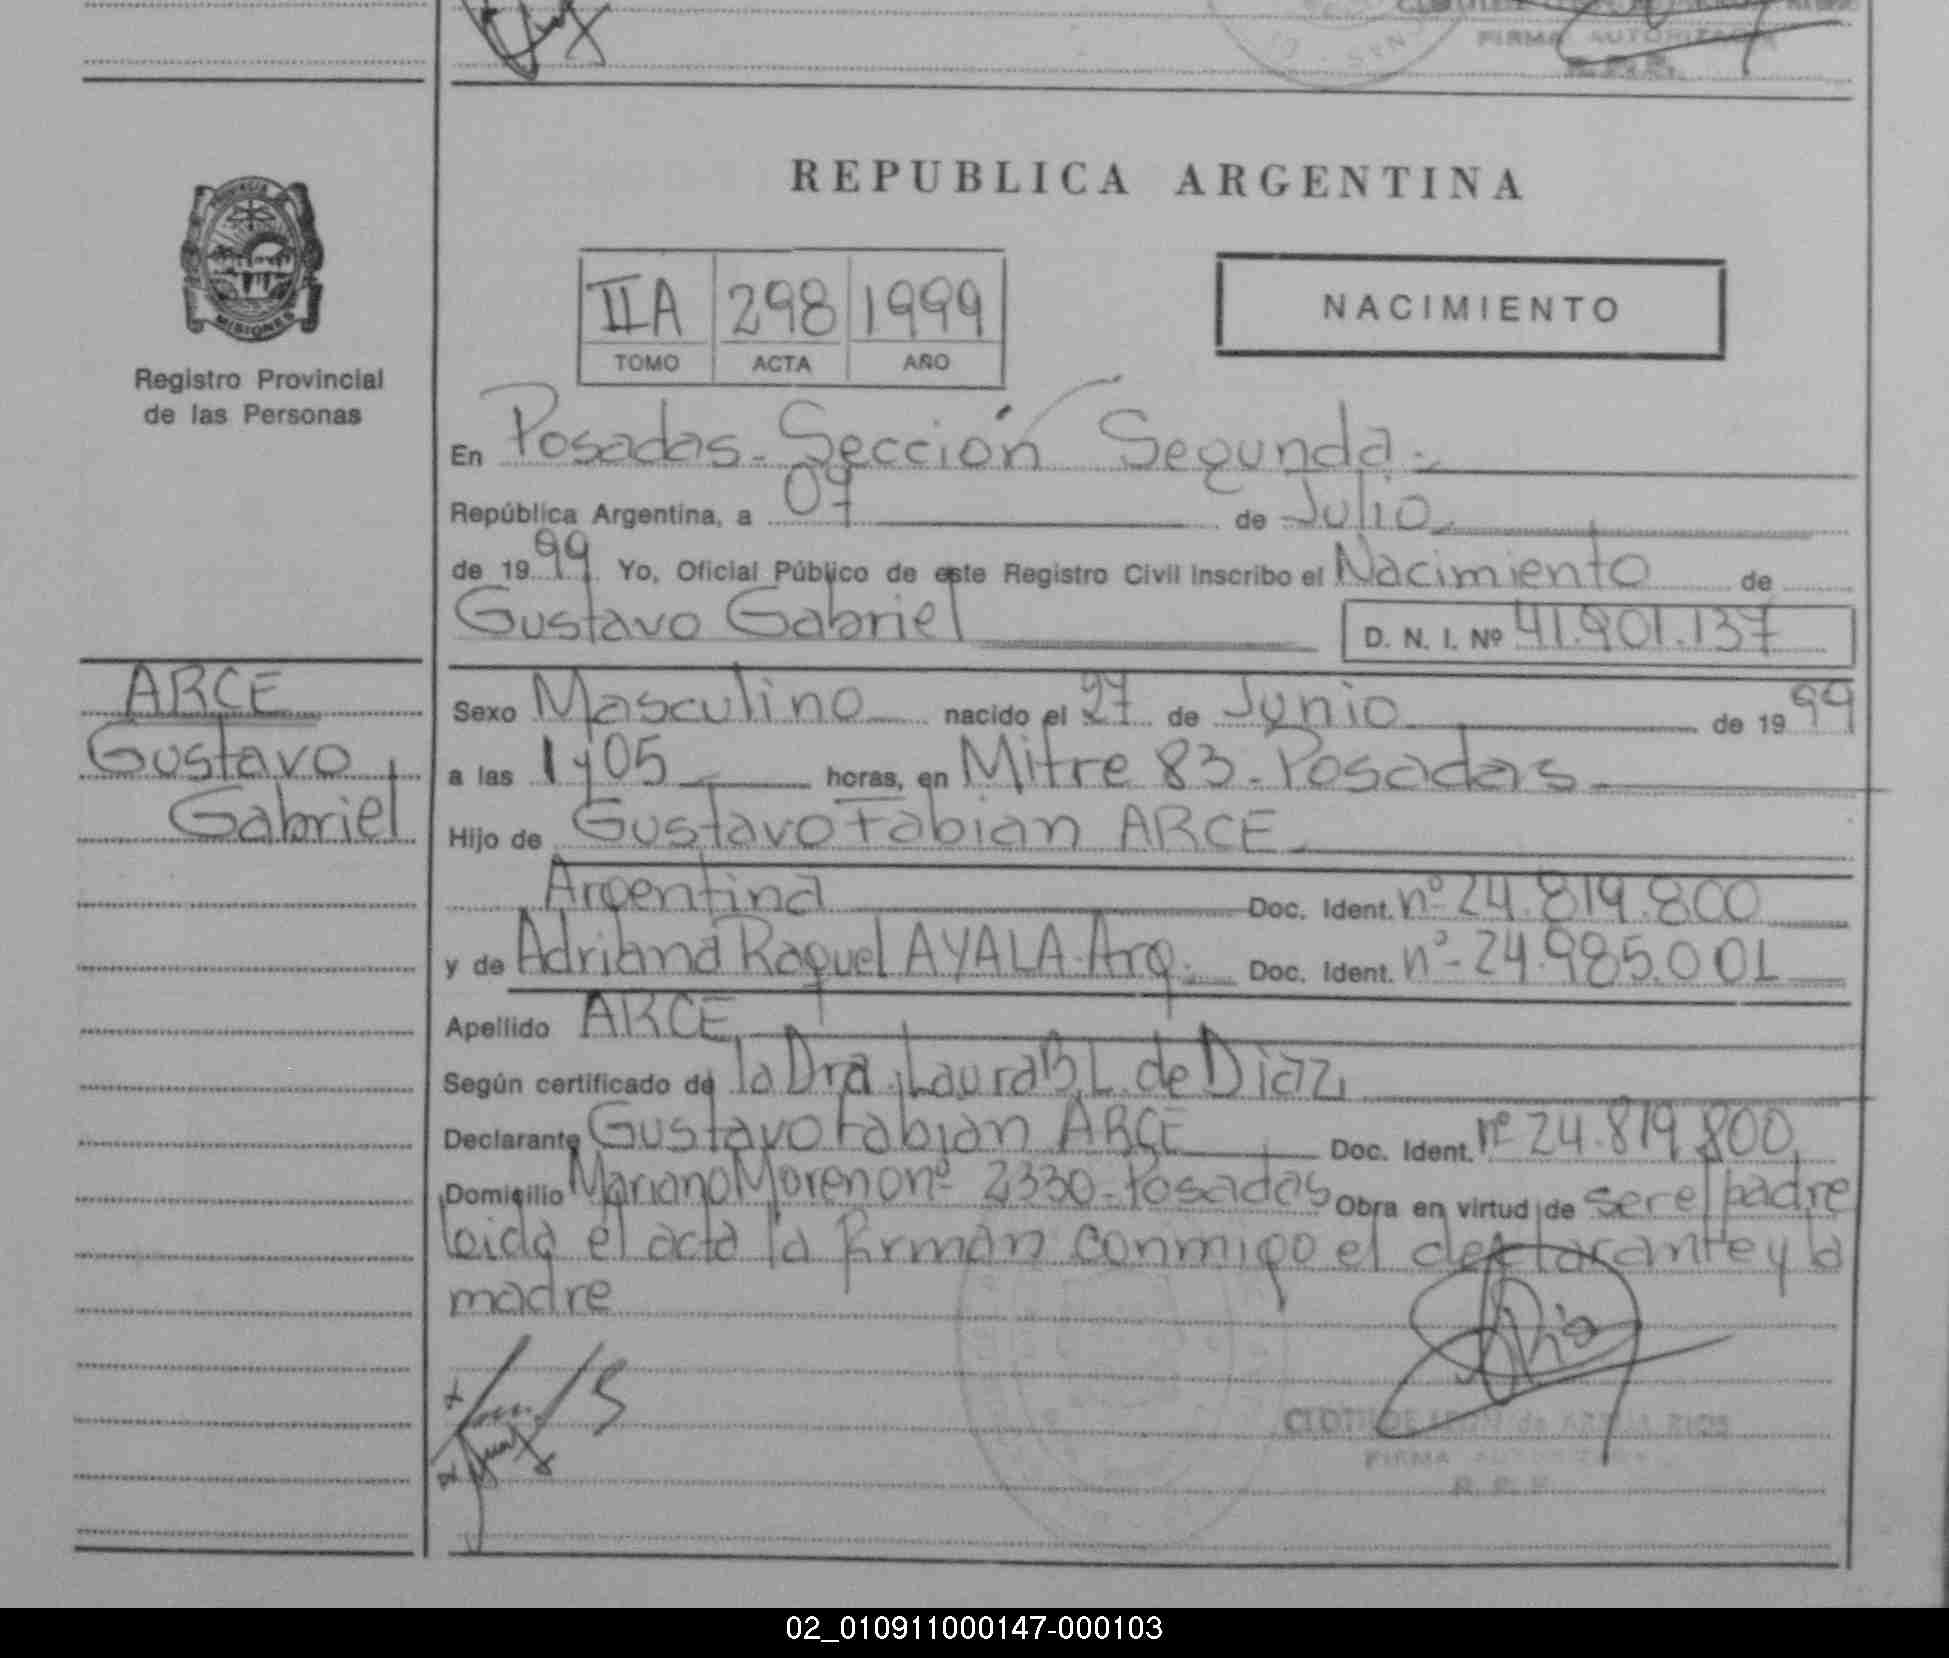 FIRMA AUTORIZADA
REPUBLICA ARGENTINA
PROVINCIA
MISIONES
Registro Provincial
de las Personas
IIA 298 1999
TOMO ACTA AÑO
NACIMIENTO
En Posadas - Sección Segunda.-
República Argentina, a 07 de Julio
de 1999 Yo, Oficial Público de este Registro Civil Inscribo el Nacimiento de
Gustavo Gabriel D. N. I. Nº 41.901.137
ARCE
Gustavo
Gabriel
Sexo Masculino nacido el 27 de Junio de 1999
a las 1 y 05 horas, en Mitre 83 - Posadas
Hijo de Gustavo Fabian ARCE
Argentina Doc. Ident. nº 24.819.800
y de Adriana Raquel AYALA - Arg. Doc. Ident. nº - 24.985.001
Apellido ARCE
Según certificado de la Dra. Laura B. L. de Diaz
Declarante Gustavo Fabian ARCE Doc. Ident. nº 24.819.800
Domicilio Mariano Moreno nº 2330 - Posadas Obra en virtud de ser el padre
leida el acta la firman conmigo el declarante y la
madre
CLOTILDE
FIRMA AUTORIZADA
02_010911000147-000103